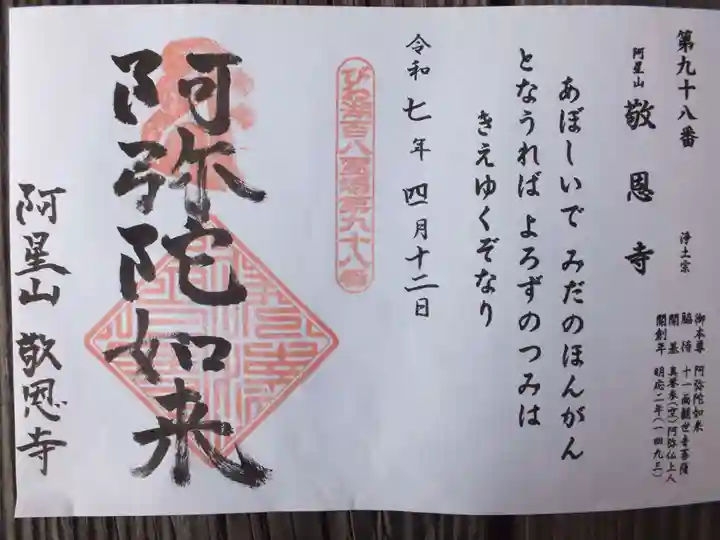 第九十八番
阿星山 敬恩寺 浄土宗
御本尊 阿弥陀如来
脇侍 十一面観世音菩薩
開基 真峯参(空)阿弥仏上人
開創年 明応二年(一四九三)
あぼしいで みだのほんがん
となうれば よろずのつみは
きえゆくぞなり
令和七年四月十二日
びわ湖百八霊場第九十八番
阿弥陀如来
阿星山 敬恩寺